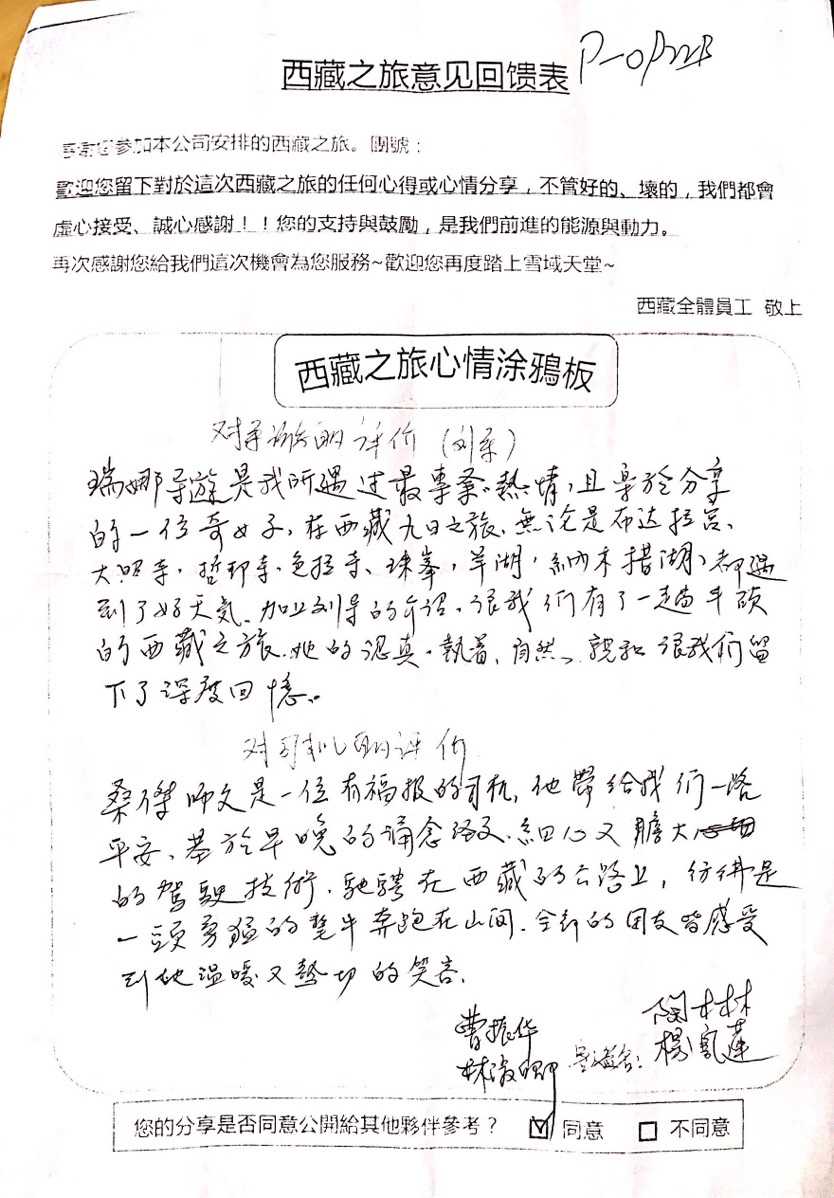 西藏之旅意见回馈表
參加本公司安排的西藏之旅。團號：
歡迎您留下對於這次西藏之旅的任何心得或心情分享，不管好的、壞的，我們都會
虛心接受、誠心感謝！！您的支持與鼓勵，是我們前進的能源與動力。
再次感謝您給我們這次機會為您服務~歡迎您再度踏上雪域天堂~
西藏全體員工 敬上
西藏之旅心情涂鴉板
对导游的评价（刘导）
瑞娜导遊是我所遇过最專業、熱情，且樂於分享
的一位奇女子，在西藏九日之旅，無論是布达拉宫、
大昭寺、哲邦寺、色拉寺、珠峯，羊湖，納木措湖、都遇
到了好天氣、加上刘导的介绍，很我们有了一趟丰硕
的西藏之旅，她的認真、執著、自然、親和 很我们留
下了深度回憶。
对司机的评价
桑傑师父是一位有福报的司机，他帶给我们一路
平安、基於早晚的誦念经文、細心又膽大
的駕駛技術，馳騁在西藏的公路上，彷彿是
一頭勇猛的氂牛奔跑在山间，全部的团友皆感受
到他温暖又熱切的笑容。
曹振华
陶林林
楊鳳蓮
您的分享是否同意公開給其他夥伴參考？ ☑ 同意 □ 不同意